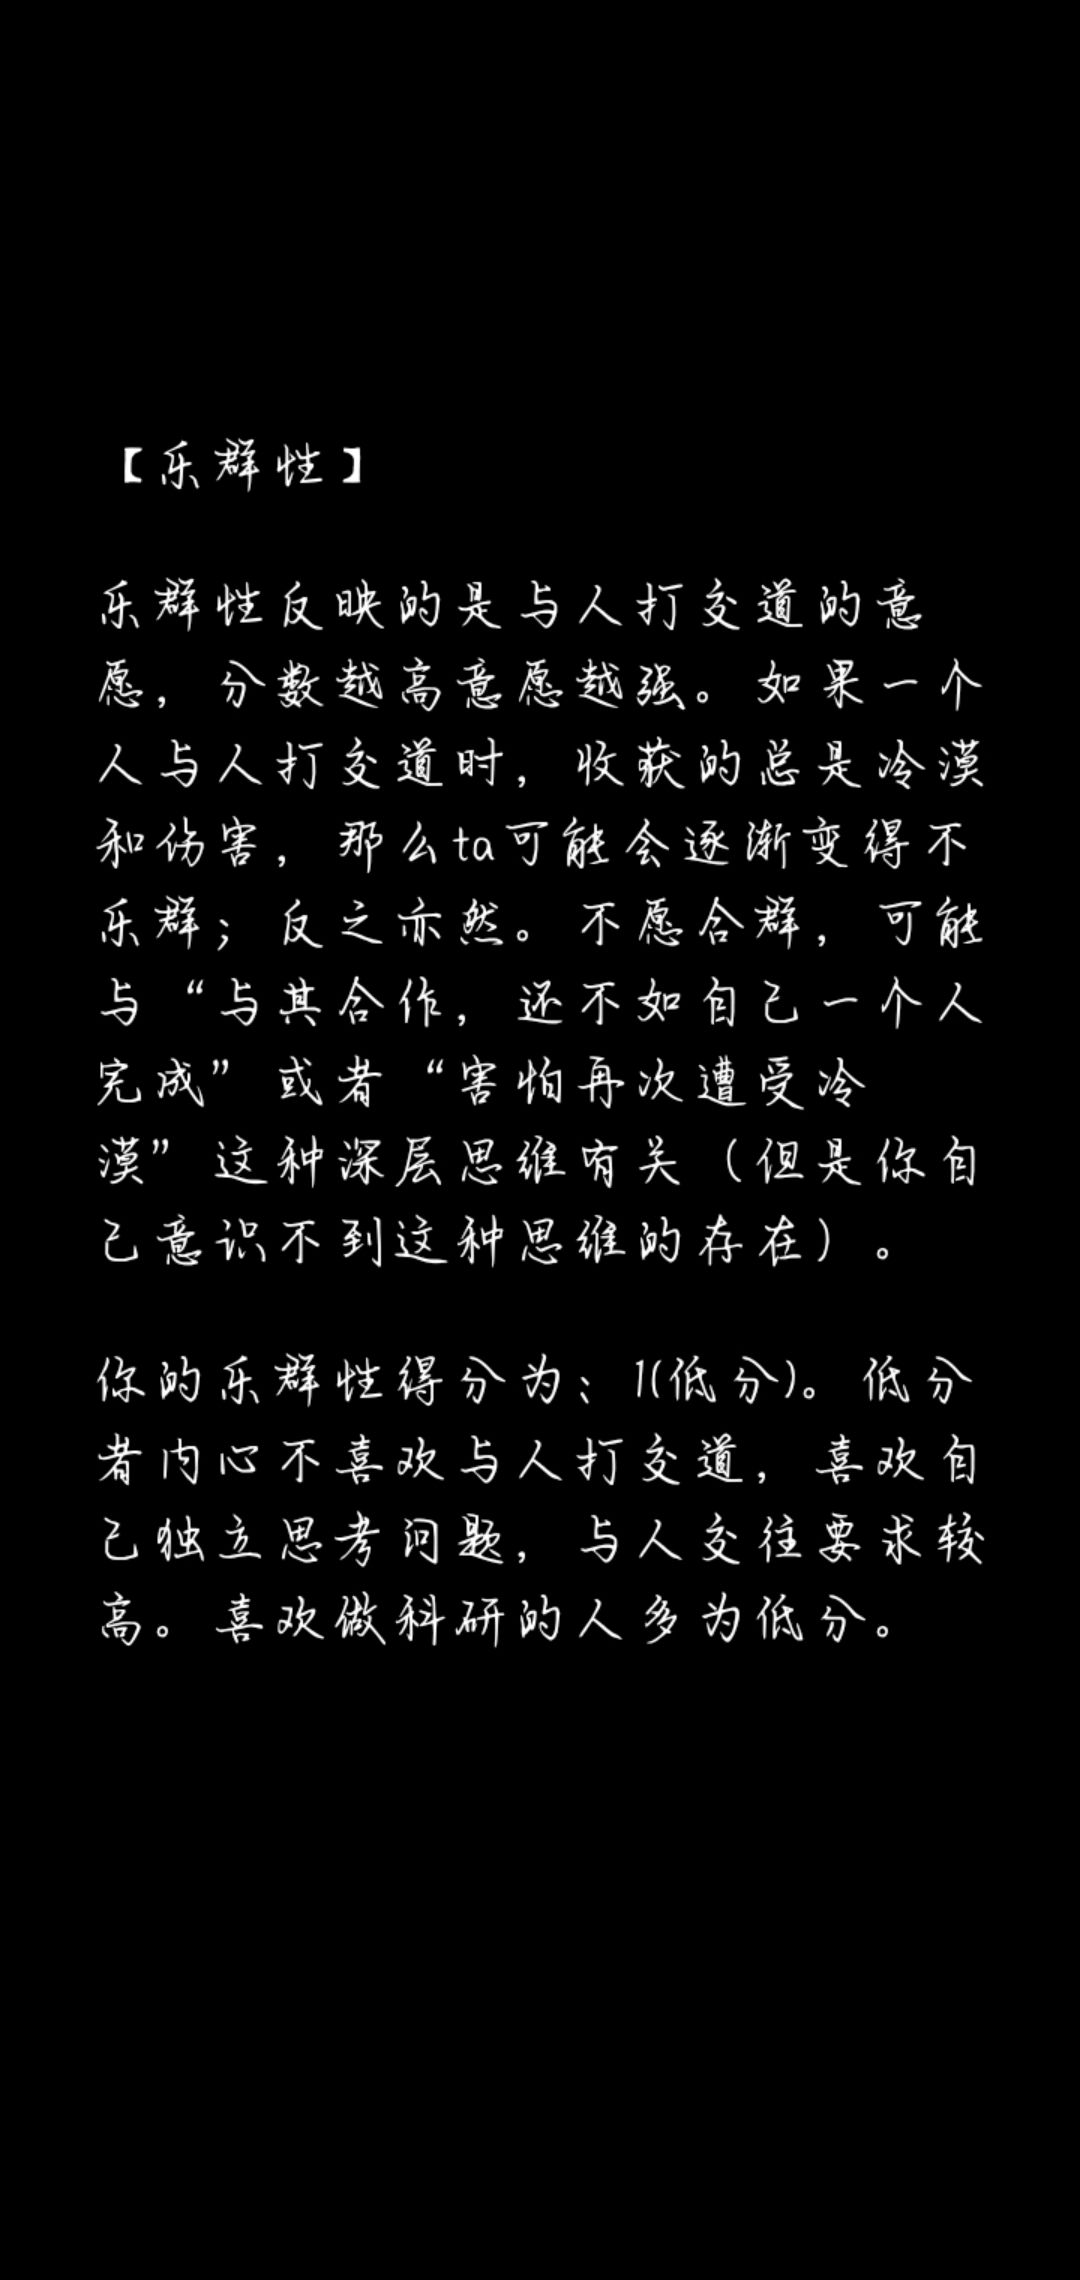 【乐群性】
乐群性反映的是与人打交道的意
愿，分数越高意愿越强。如果一个
人与人打交道时，收获的总是冷漠
和伤害，那么ta可能会逐渐变得不
乐群；反之亦然。不愿合群，可能
与“与其合作，还不如自己一个人
完成”或者“害怕再次遭受冷
漠”这种深层思维有关（但是你自
己意识不到这种思维的存在）。
你的乐群性得分为：1(低分)。低分
者内心不喜欢与人打交道，喜欢自
己独立思考问题，与人交往要求较
高。喜欢做科研的人多为低分。